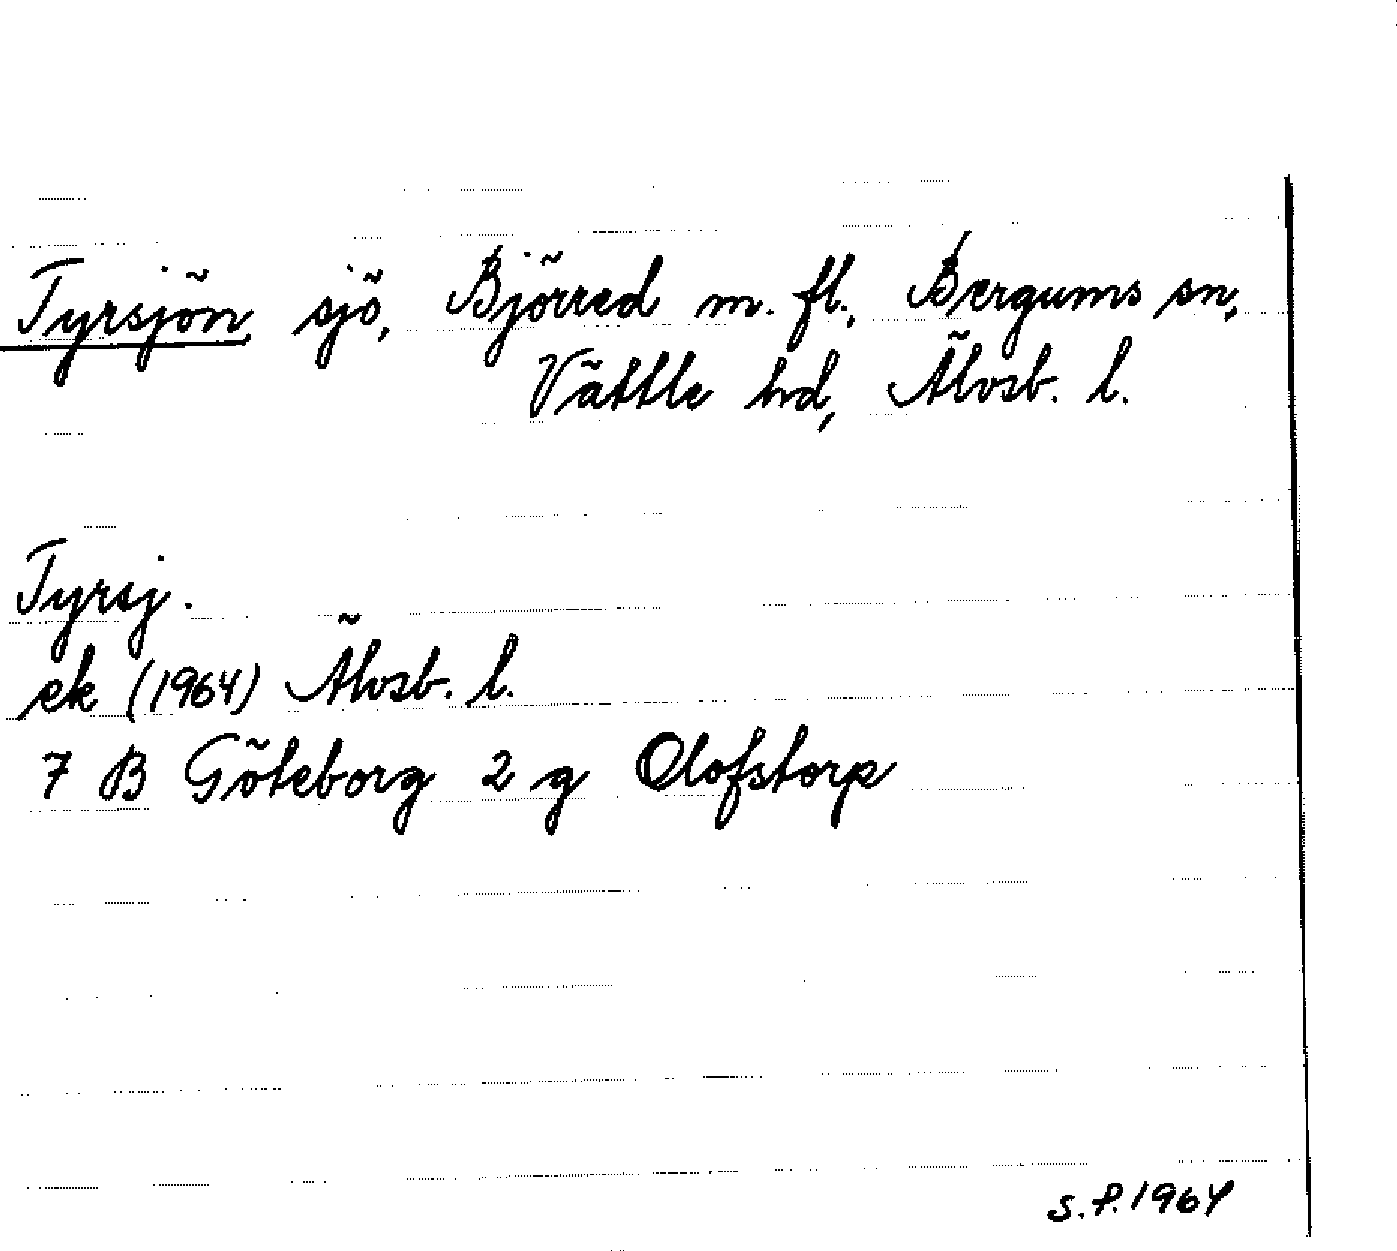 Tyrsjön, sjö, Björred m. fl., Bergums sn,
Vättle hd, Älvsb. l.
Tyrsj.
ek (1964) Älvsb. l.
7 B Göteborg 2 g Olofstorp
S.P. 1964